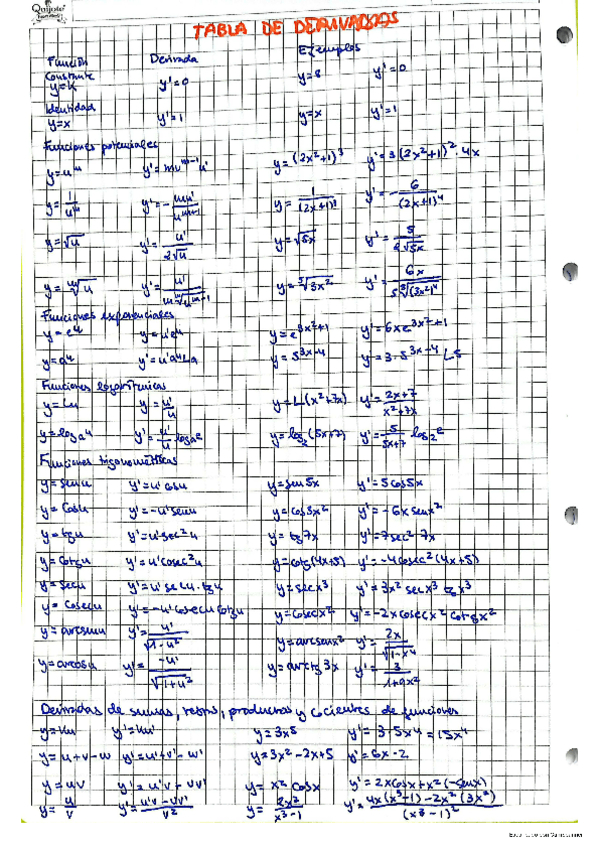 Quijote
TABLA DE DERIVADAS
Función Derivada Ejemplos
Constante
y=k y'=0 y=8 y'=0
Identidad
y=x y'=1 y=x y'=1
Funciones potenciales
y=u^m y'=mu^(m-1)u' y=(2x²+1)³ y'=3(2x²+1)²·4x
y=1/u^m y'=-mu'/u^(m+1) y=1/(2x+1)³ y'=-6/(2x+1)⁴
y=√u y'=u'/2√u y=√5x y'=5/2√5x
y=ᵐ√u y'=u'/m ᵐ√u^(m-1) y=⁵√3x² y'=6x/5 ⁵√(3x²)⁴
Funciones exponenciales
y=e^u y'=u'e^u y=e^(3x²+1) y'=6xe^(3x²+1)
y=a^u y'=u'a^u La y=5^(3x-4) y'=3·5^(3x-4) L5
Funciones logarítmicas
y=Lu y'=u'/u y=L(x²+7x) y'=2x+7/x²+7x
y=logₐu y'=u'/u logₐe y=log₂(5x+7) y'=5/5x+7 log₂e
Funciones trigonométricas
y=senu y'=u'cosu y=sen5x y'=5cos5x
y=cosu y'=-u'senu y=cos3x² y'=-6xsenx²
y=tgu y'=u'sec²u y=tg7x y'=7sec²7x
y=cotgu y'=u'cosec²u y=cotg(4x+5) y'=-4cosec²(4x+5)
y=secu y'=u'secu.tgu y=secx³ y'=3x²secx³tgx³
y=cosecu y'=-u'cosecu cotgu y=cosecx² y'=-2xcosecx²cotgx²
y=arcsenu y'=u'/√1-u² y=arcsenx² y'=2x/√1-x⁴
y=arcosu y'=-u'/√1+u² y=arctg3x y'=3/1+9x²
Derivadas de sumas, restas, productos y cocientes de funciones
y=ku y'=ku' y=3x5 y'=3·5x⁴=15x⁴
y=u+v-w y'=u'+v'-w' y=3x²-2x+5 y'=6x-2
y=uv y'=u'v+uv' y=x²cosx y'=2xcosx+x²(-senx)
y=u/v y'=u'v-uv'/v² y=2x²/x³-1 y'=4x(x³-1)-2x²(3x²)/(x³-1)²